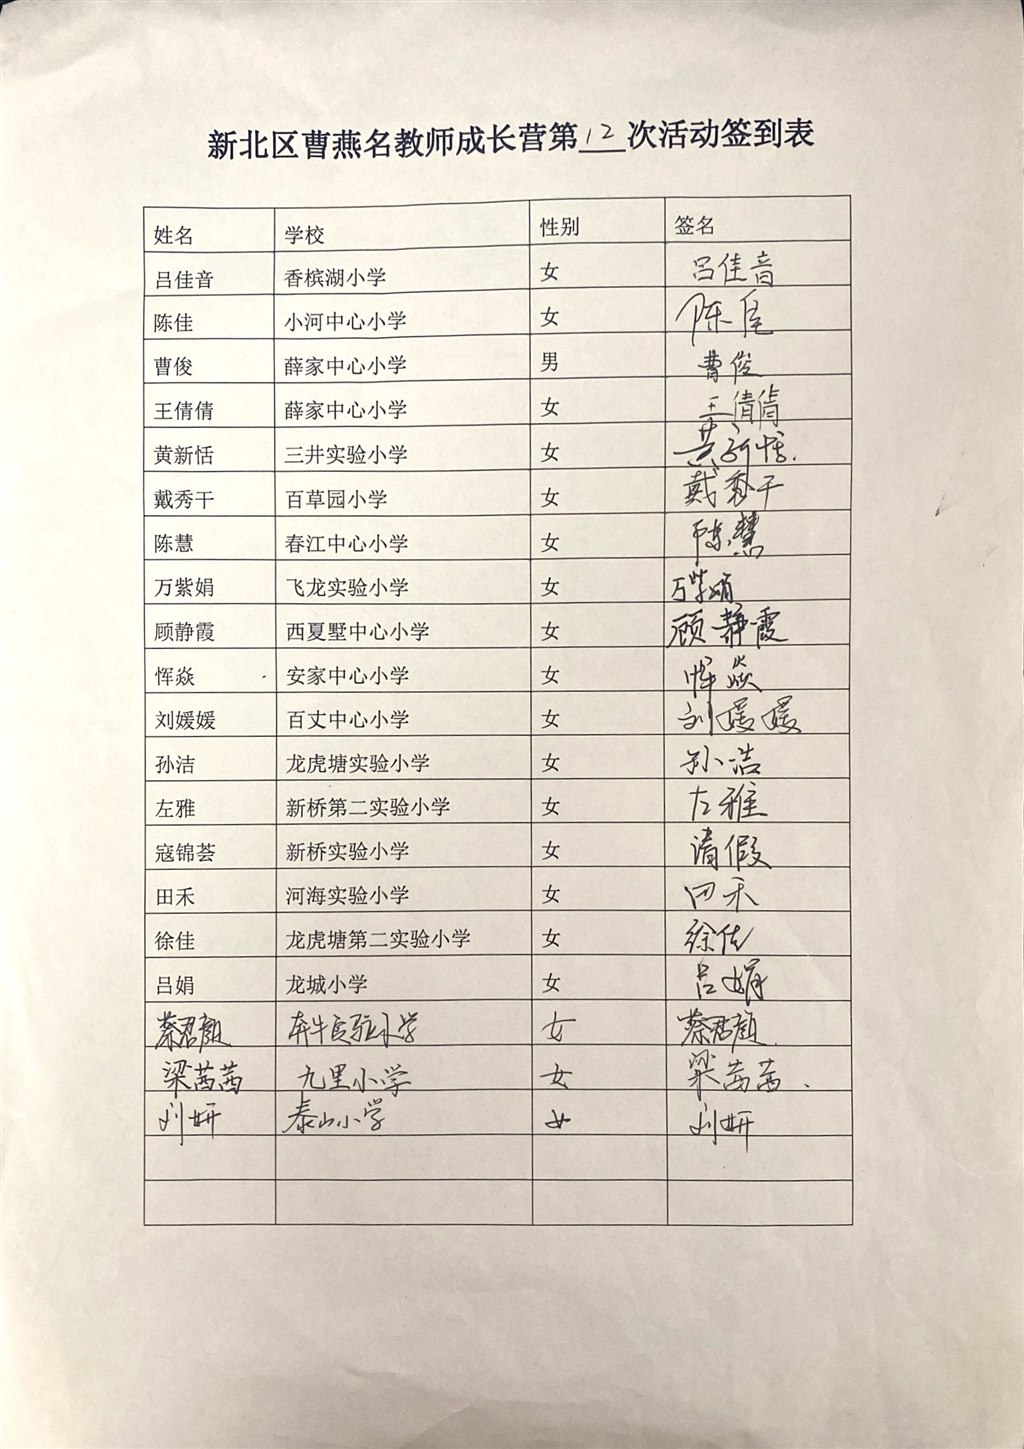 新北区曹燕名教师成长营第12次活动签到表
姓名 学校 性别 签名
吕佳音 香槟湖小学 女 吕佳音
陈佳 小河中心小学 女 陈佳
曹俊 薛家中心小学 男 曹俊
王倩倩 薛家中心小学 女 王倩倩
黄新恬 三井实验小学 女 黄新恬.
戴秀干 百草园小学 女 戴秀干
陈慧 春江中心小学 女 陈慧
万紫娟 飞龙实验小学 女 万紫娟
顾静霞 西夏墅中心小学 女 顾静霞
恽焱 安家中心小学 女 恽焱
刘媛媛 百丈中心小学 女 刘媛媛
孙洁 龙虎塘实验小学 女 孙洁
左雅 新桥第二实验小学 女 左雅
寇锦荟 新桥实验小学 女 请假
田禾 河海实验小学 女 田禾
徐佳 龙虎塘第二实验小学 女 徐佳
吕娟 龙城小学 女 吕娟
蔡君颜 奔牛实验小学 女 蔡君颜.
梁茜茜 九里小学 女 梁茜茜.
刘妍 泰山小学 女 刘妍